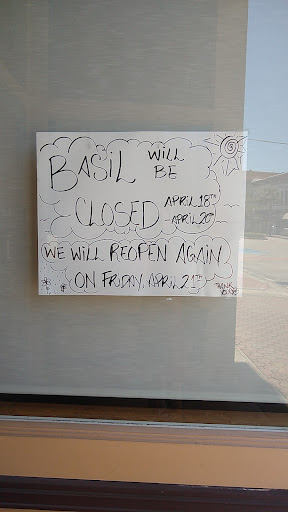 BASIL WILL BE
CLOSED APRIL 18TH
APRIL 20TH
WE WILL REOPEN AGAIN
ON FRIDAY, APRIL 21ST
THANK
YOU